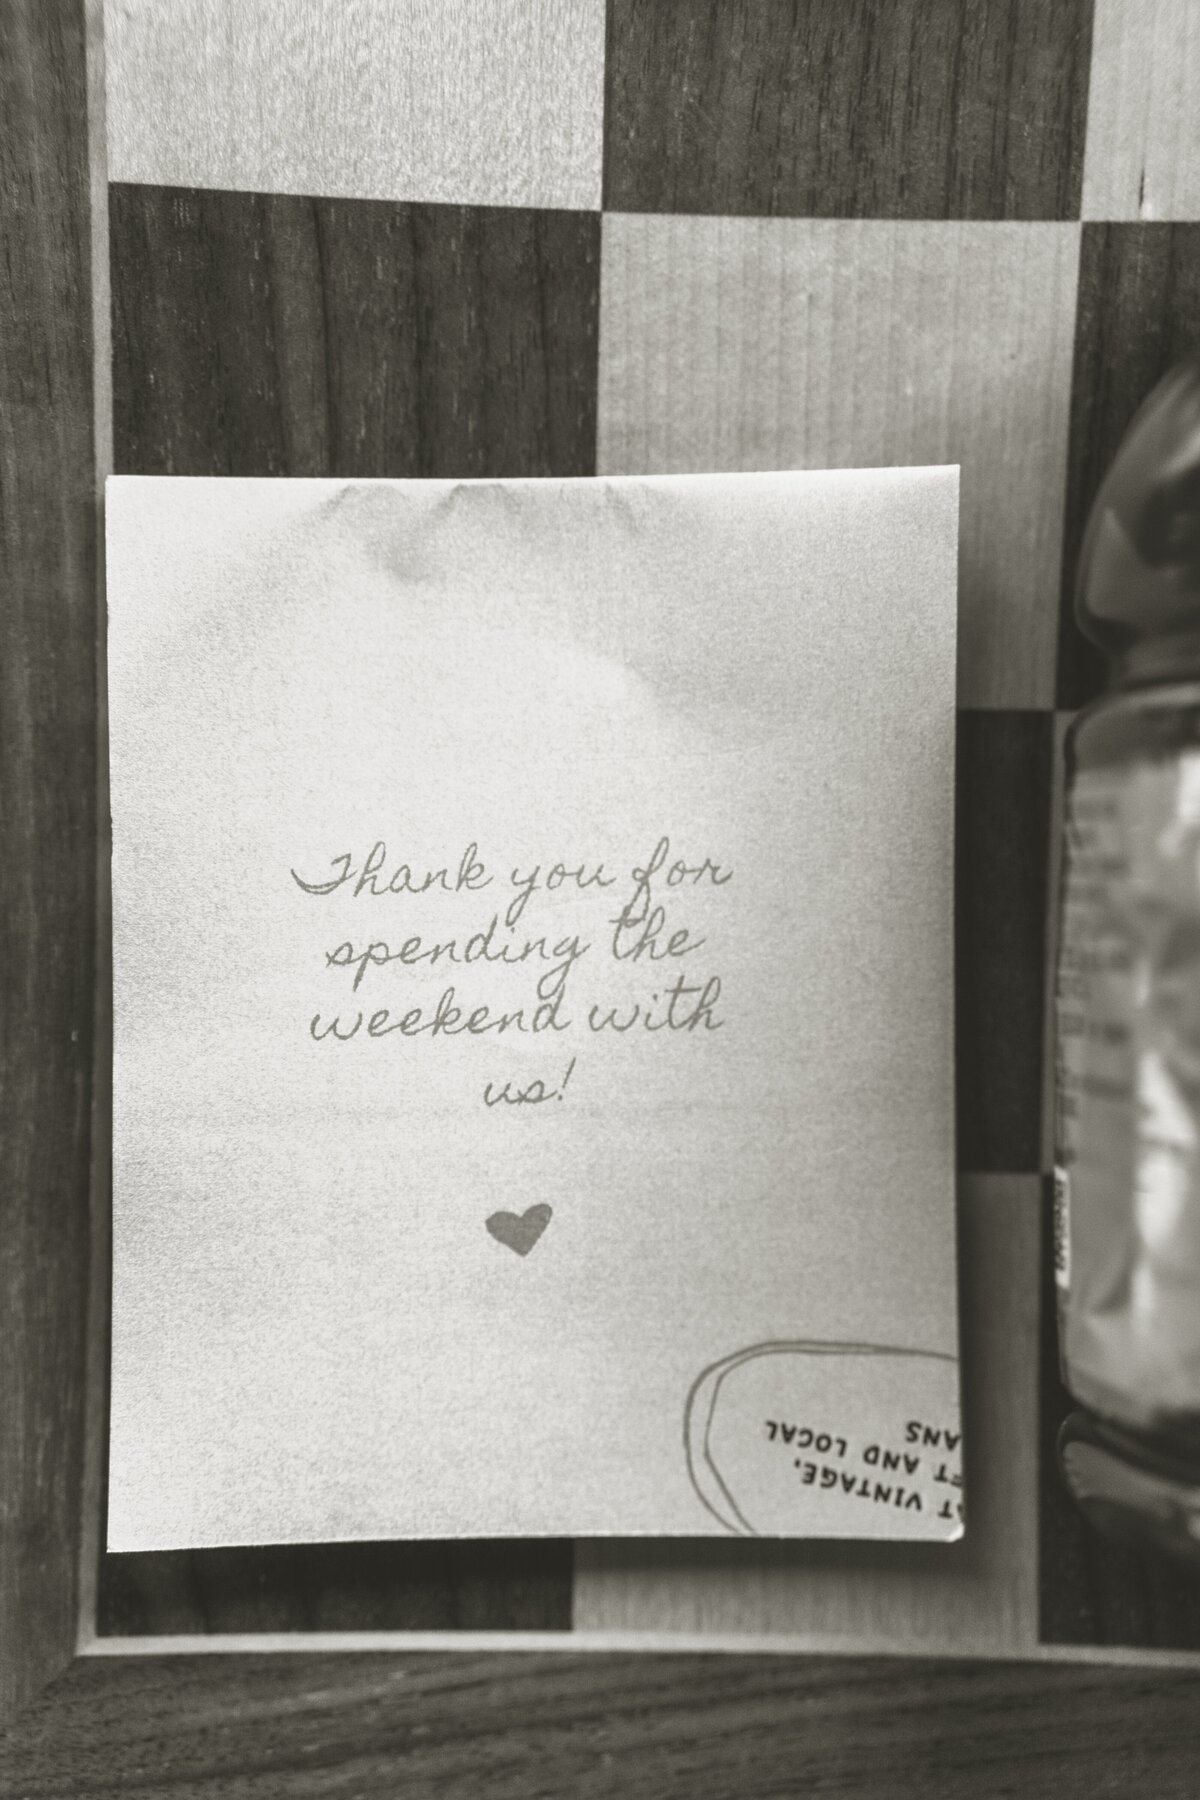 Thank you for
spending the
weekend with
us!
AT VINTAGE,
FT AND LOCAL
ANS